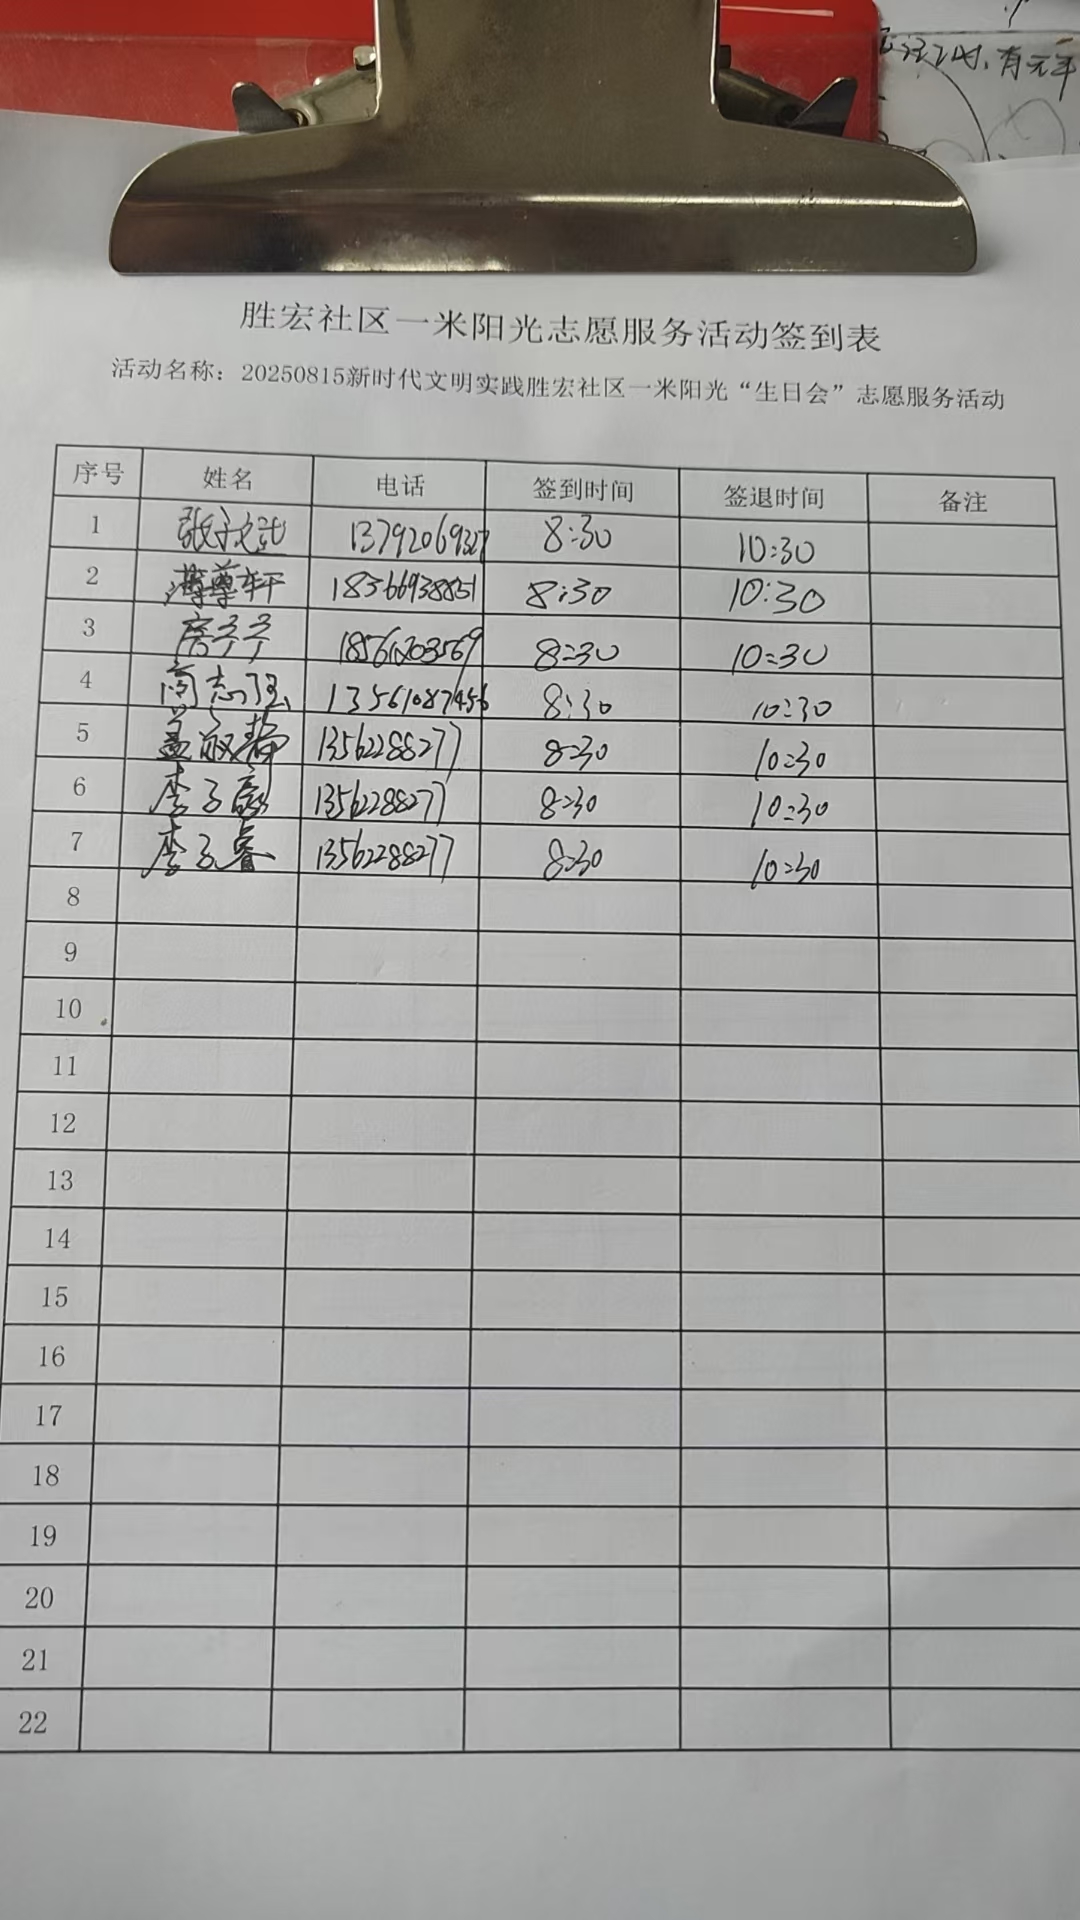 胜宏社区一米阳光志愿服务活动签到表
活动名称：20250815新时代文明实践胜宏社区一米阳光“生日会”志愿服务活动
序号 姓名 电话 签到时间 签退时间 备注
1 张 13792069327 8:30 10:30
2 轩 18366938851 8:30 10:30
3 房 18561203569 8:30 10:30
4 高志强 13561087456 8:30 10:30
5 孟淑静 13562288277 8:30 10:30
6 李子 13562288277 8:30 10:30
7 李子睿 13562288277 8:30 10:30
8
9
10
11
12
13
14
15
16
17
18
19
20
21
22